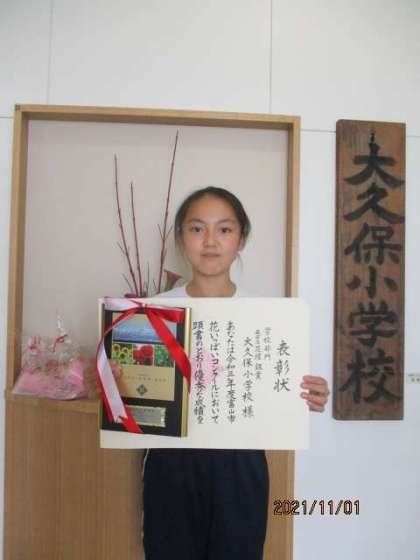 大久保小学校
表彰状
学校部門
大久保小学校 様
あなたは令和三年度富山市
花いっぱいコンクールにおいて
頭書のとおり優秀な成績を
2021/11/01